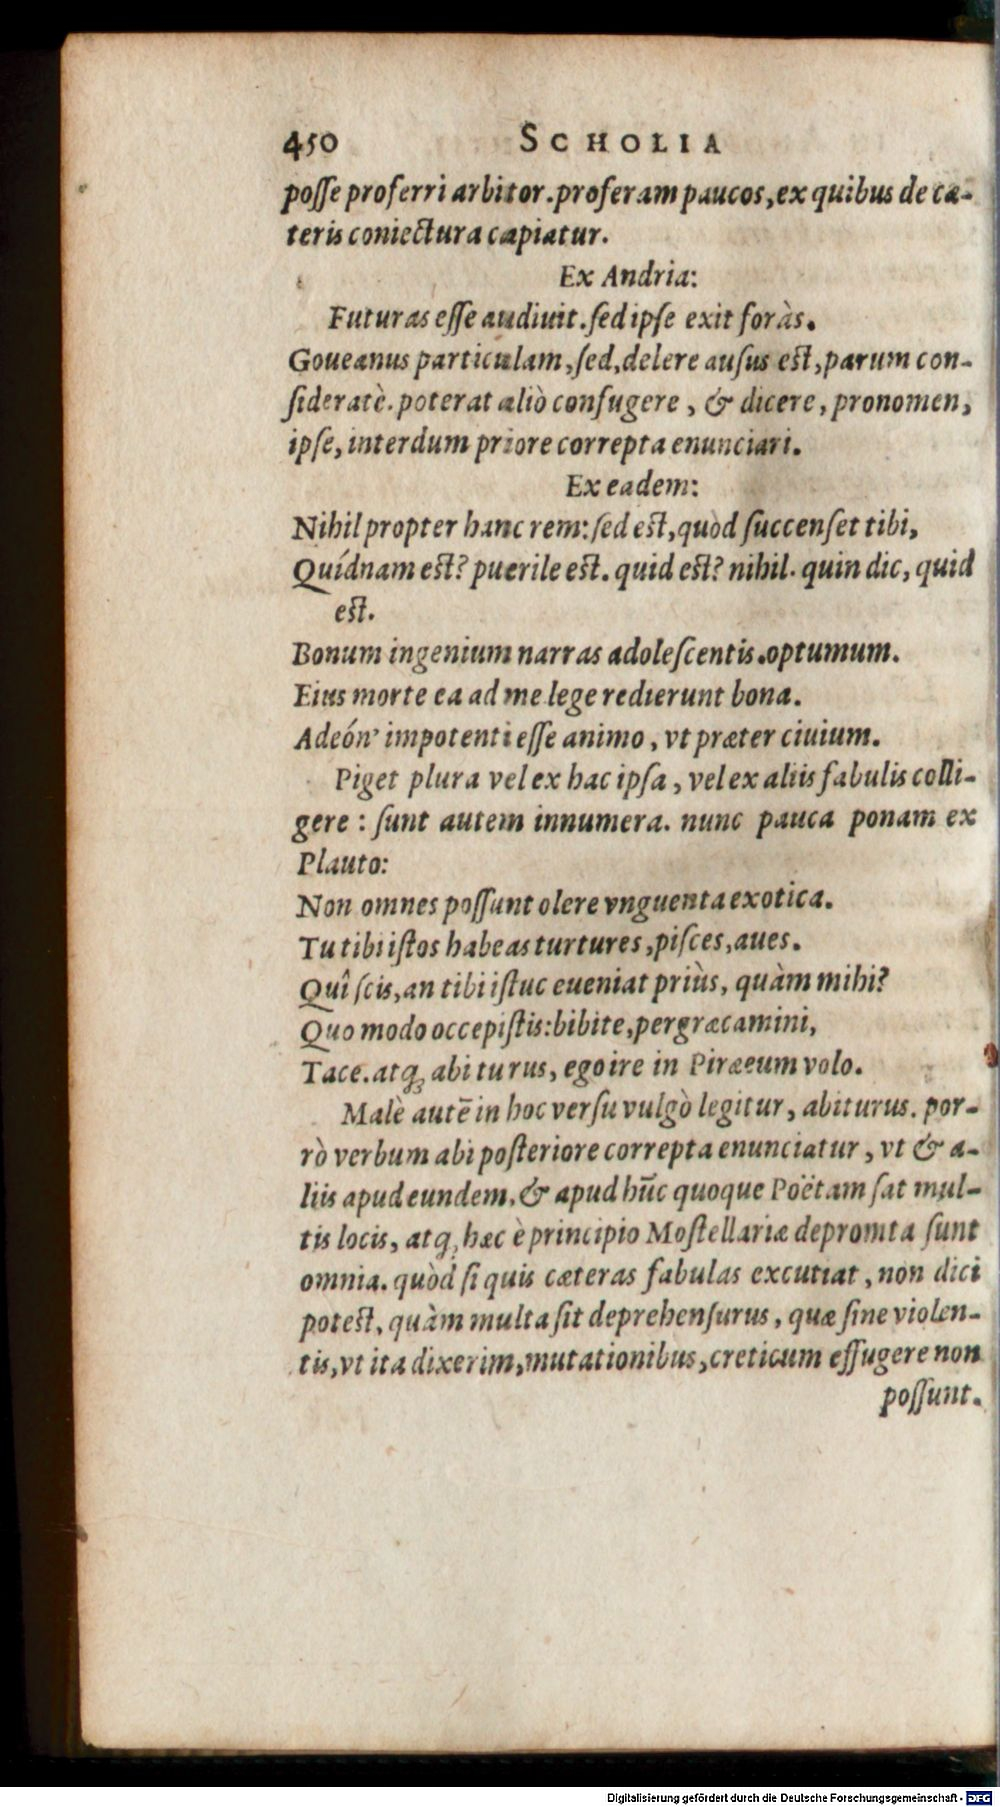 450 SCHOLIA
posse proferri arbitor. proferam paucos, ex quibus de cæ-
teris coniectura capiatur.
Ex Andria:
Futuras esse audiuit. sed ipse exit foràs.
Goueanus particulam, sed, delere ausus est, parum con-
sideratè. poterat aliò confugere, & dicere, pronomen,
ipse, interdum priore correpta enunciari.
Ex eadem:
Nihil propter hanc rem: sed est, quòd succenset tibi,
Quídnam est? puerile est. quid est? nihil. quin dic, quid
est.
Bonum ingenium narras adolescentis. optumum.
Eius morte ea ad me lege redierunt bona.
Adeón' impotenti esse animo, vt præter ciuium.
Piget plura vel ex hac ipsa, vel ex aliis fabulis colli-
gere: sunt autem innumera. nunc pauca ponam ex
Plauto:
Non omnes possunt olere vnguenta exotica.
Tu tibi istos habeas turtures, pisces, aues.
Quî scis, an tibi istuc eueniat priùs, quàm mihi?
Quo modo occepistis: bibite, pergræcamini,
Tace. atq; abi turus, ego ire in Piræeum volo.
Malè autē in hoc versu vulgò legitur, abiturus. por-
rò verbum abi posteriore correpta enunciatur, vt & a-
liis apud eundem, & apud hūc quoque Poëtam sat mul-
tis locis, atq; hæc è principio Mostellariæ depromta sunt
omnia. quòd si quis cæteras fabulas excutiat, non dici
potest, quàm multa sit deprehensurus, quæ sine violen-
tis, vt ita dixerim, mutationibus, creticum effugere non
possunt.
Digitalisierung gefördert durch die Deutsche Forschungsgemeinschaft - DFG